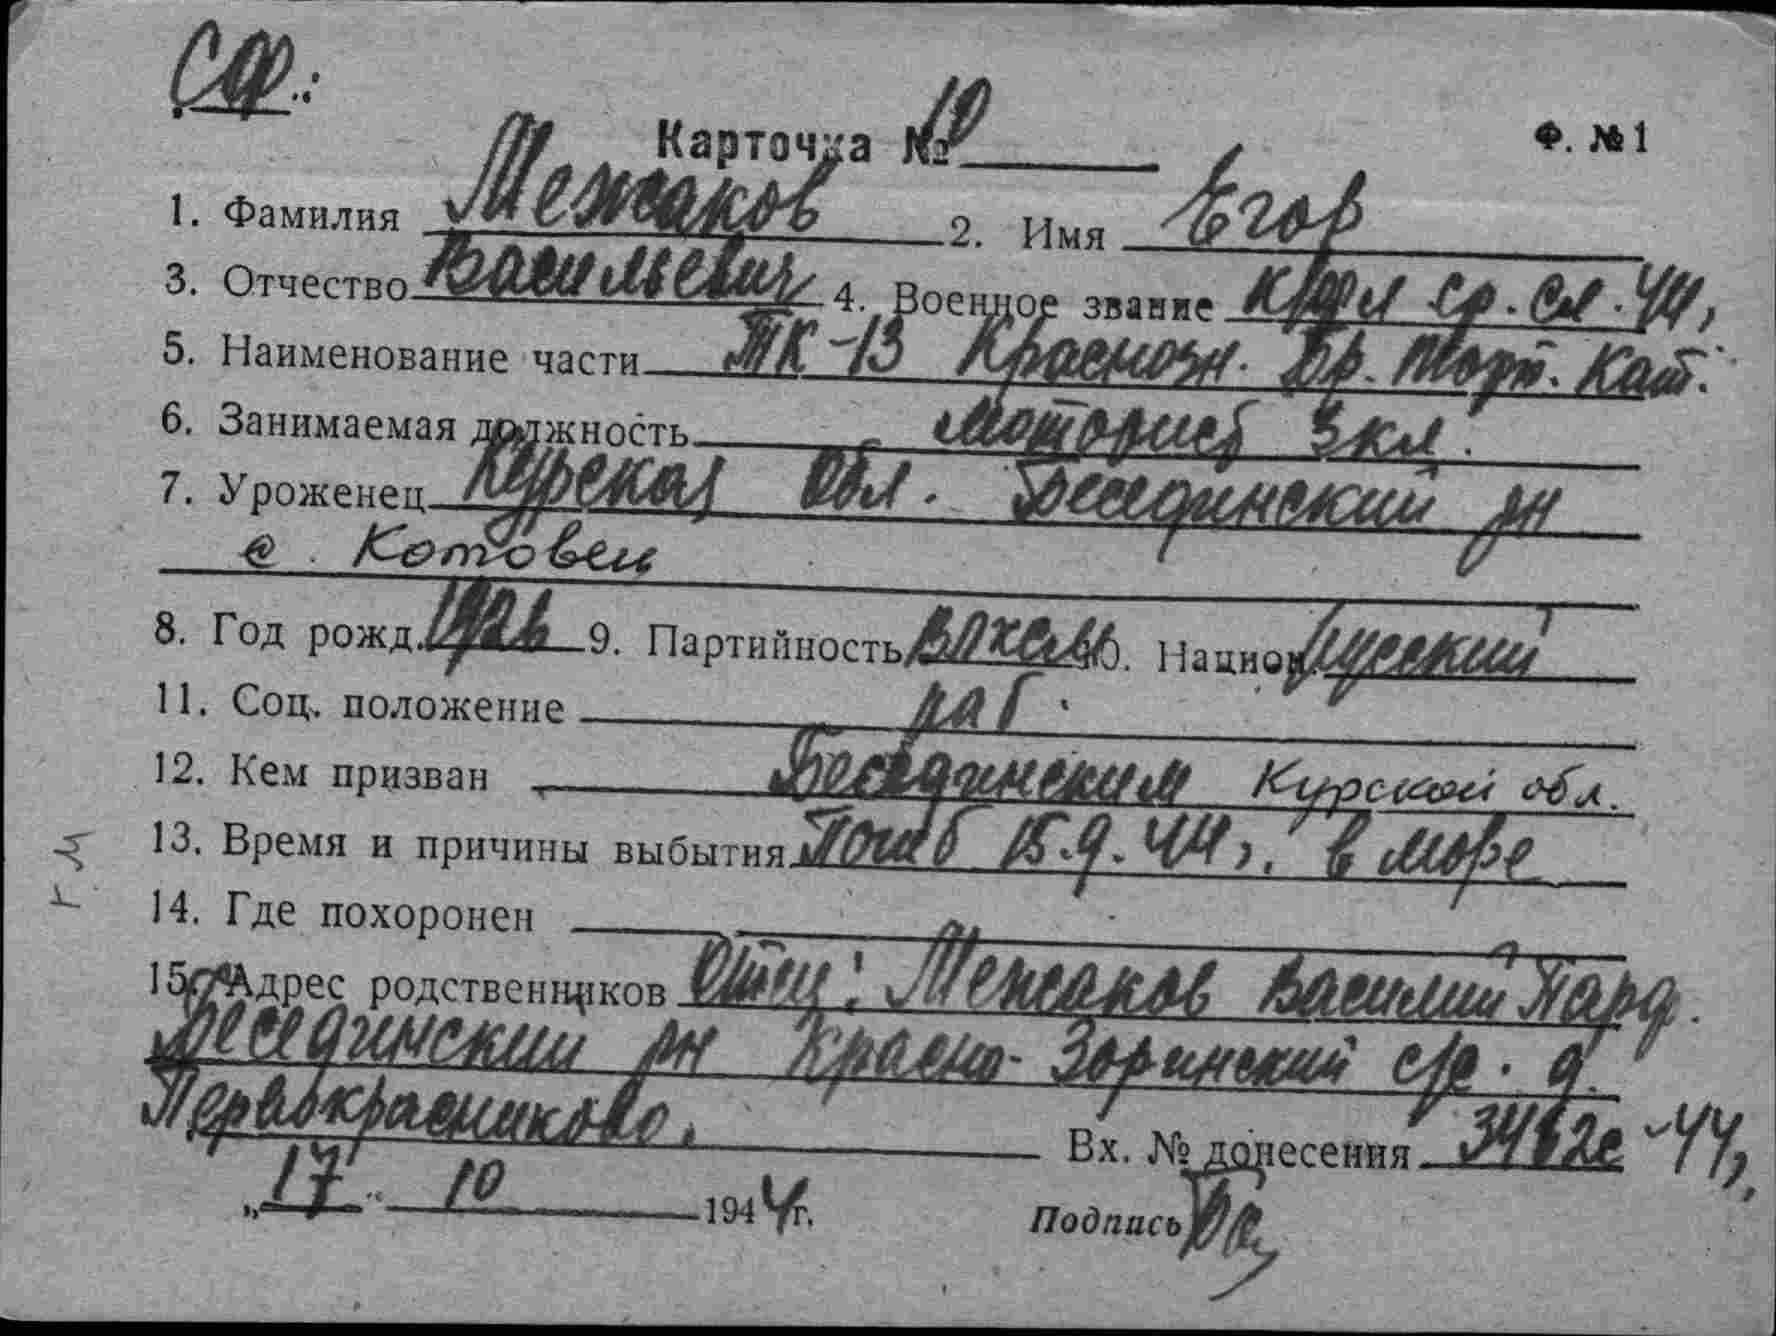 СФ.:
Карточка № 10 Ф. №1
1. Фамилия Межаков 2. Имя Егор
3. Отчество Васильевич 4. Военное звание кр-фл ср. сл. 44,
5. Наименование части ТК-13 Краснозн. Бр. Торп. Кат.
6. Занимаемая должность моторист 3 кл.
7. Уроженец Курская обл. Бесединский рн
с. Котовец
8. Год рожд. 9. Партийность ВЛКСМ 10. Национ. русский
11. Соц. положение раб.
12. Кем призван Бесединским Курской обл.
13. Время и причины выбытия Погиб 15.9.44, в море
14. Где похоронен
15. Адрес родственников Отец: Межаков Василий
Бесединский рн Красно-Зоринский с/с. д.
Вх. № донесения 3462с -44,
„17" 10 1944г. Подпись